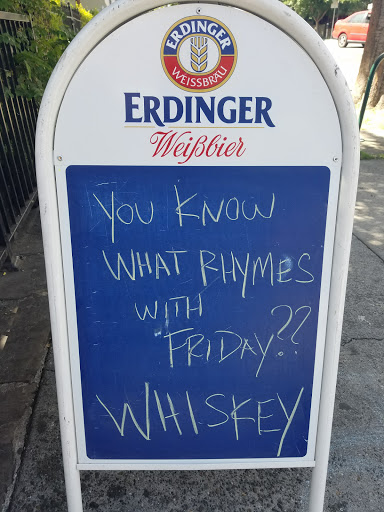 ERDINGER
WEISSBRÄU
ERDINGER
Weißbier
YOU KNOW
WHAT RHYMES
WITH
FRIDAY??
WHISKEY